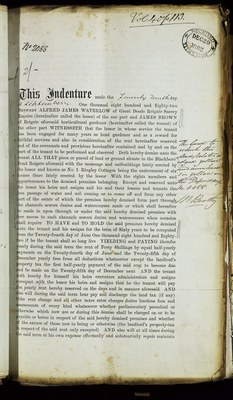 Vol 4 of 113.
No 2088
2/-
This Indenture made the Twenty
One thousand eight hundred and Eighty-two
Between ALFRED JAMES WATERLOW of Great Doods Reigate Surrey
Esquire (hereinafter called the lessor) of the one part and JAMES BROWN
of Reigate aforesaid horticultural gardener (hereinafter called the tenant) of
the other part WITNESSETH that the lessor in whose service the tenant
has been engaged for many years as head gardener and as a reward for
faithful services and also in consideration of the rent hereinafter reserved
and of the covenants and provisions hereinafter contained and by and on the
part of the tenant to be performed and observed Doth hereby demise unto the
tenant ALL THAT piece or parcel of land or ground situate in the Blackborough
Road Reigate aforesaid with the messuage and outbuildings lately erected by
the lessor and known as No 1 Brighly Cottages being the easternmost of the
houses there lately erected by the lessor With the rights members and
appurtenances to the demised premises belonging Except and reserving to
the lessor his heirs and assigns and his and their lessees and tenants the
free passage of water and soil coming or to come off and from any other
part of the estate of which the premises hereby demised form part through
the channels sewers drains and watercourses made or which shall hereafter
be made in upon through or under the said hereby demised premises with
free access to such channels sewers drains and watercourses when occasion
shall require TO HAVE and TO HOLD the said premises hereby demised
unto the tenant and his assigns for the term of Sixty years to be computed
from the Twenty-fourth day of June One thousand eight hundred and Eighty-
two if he the tenant shall so long live YIELDING and PAYING therefor
yearly during the said term the rent of Forty Shillings by equal half-yearly
payments on the Twenty-fourth day of June and the Twenty-fifth day of
December yearly free from all deductions whatsoever except the landlord's
property tax the first half-yearly payment of the said rent to become due
and be made on the Twenty-fifth day of December next AND the tenant
doth hereby for himself his heirs executors administrators and assigns
covenant with the lessor his heirs and assigns that he the tenant will pay
the yearly rent hereby reserved on the days and in manner aforesaid AND
also will during the said term bear pay and discharge the land tax (if any)
tithe rent charge and all other taxes rates charges duties burdens fees and
assessments of every kind whatsoever whether parliamentary parochial or
otherwise which now are or during this demise shall be charged on or to be
payable or borne in respect of the said hereby demised premises and whether
of the nature of those now in being or otherwise (the landlord's property-tax
in respect of the said rent only excepted) AND also will at all times during
the said term at his own expense effectually and substantially repair maintain